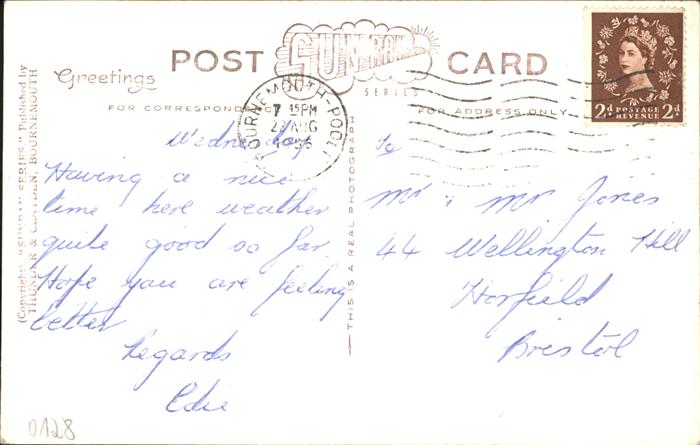 POST SUNRAY CARD
SERIES
Greetings
FOR CORRESPONDENCE
FOR ADDRESS ONLY
BOURNEMOUTH-POOLE
7 15PM
22 AUG
1956
2d POSTAGE REVENUE 2d
Wednesday
Having a nice
time here weather
quite good so far.
Hope you are feeling
better
Regards
Edie
To
Mr & Mr Jones
44 Wellington Hill
Horfield
Bristol
THIS IS A REAL PHOTOGRAPH
(Copyright, "SUNRAY SERIES." Published by
THUNDER & CLAYDEN, BOURNEMOUTH
0128